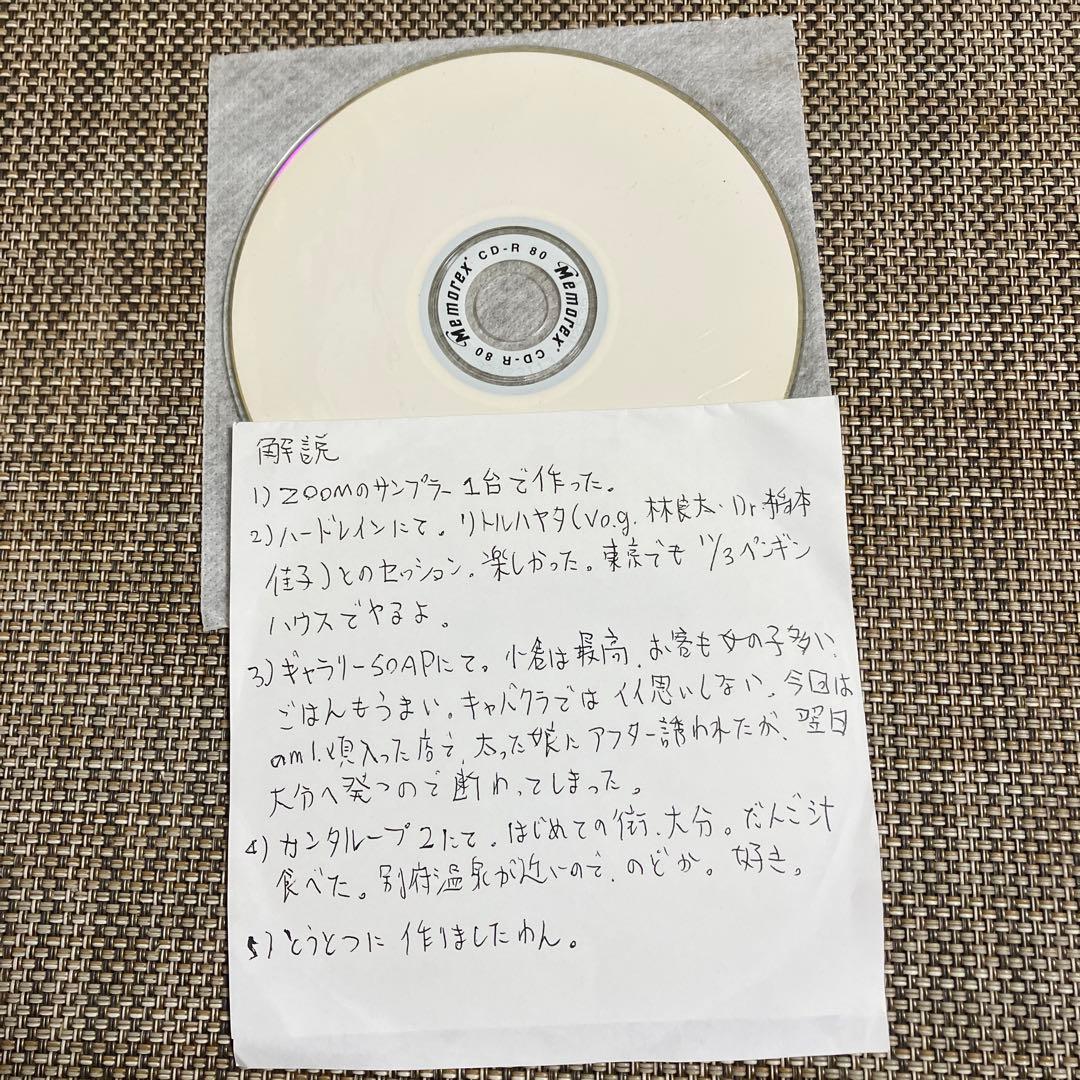 Memorex CD-R 80 Memorex CD-R 80
解説
1) ZOOMのサンプラー 1台で作った。
2) ハードレインにて。リトルハヤタ(Vo.g. 林良太・Dr.稲本
佳子)とのセッション。楽しかった。東京でも 11/3ペンギン
ハウスでやるよ。
3) ギャラリーSOAPにて。小倉は最高、お客も女の子多い、
ごはんもうまい。キャバクラでは イイ思いしない。今回は
am1:頃入った店で、太った娘に アフター誘われたが、翌日
大分へ発つので断わってしまった。
4) カンタループ2にて。はじめての街、大分。だんご汁
食べた。別府温泉が近いので、のどか。好き。
5) とうとつに 作りましたわん。